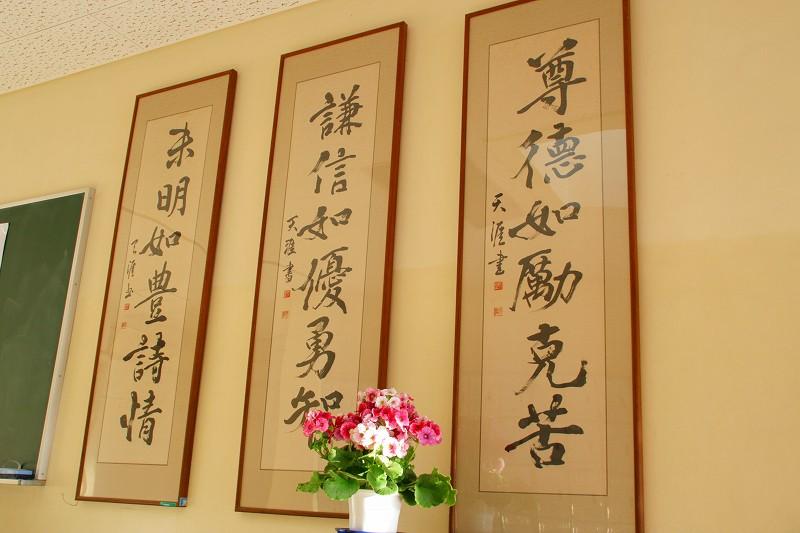 尊德如勵克苦
天涯書
謙信如優勇知
天涯書
未明如豊詩情
天涯書